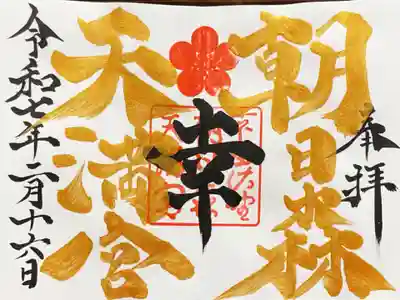 奉拝
朝日森
天満宮
幸
令和七年二月十六日